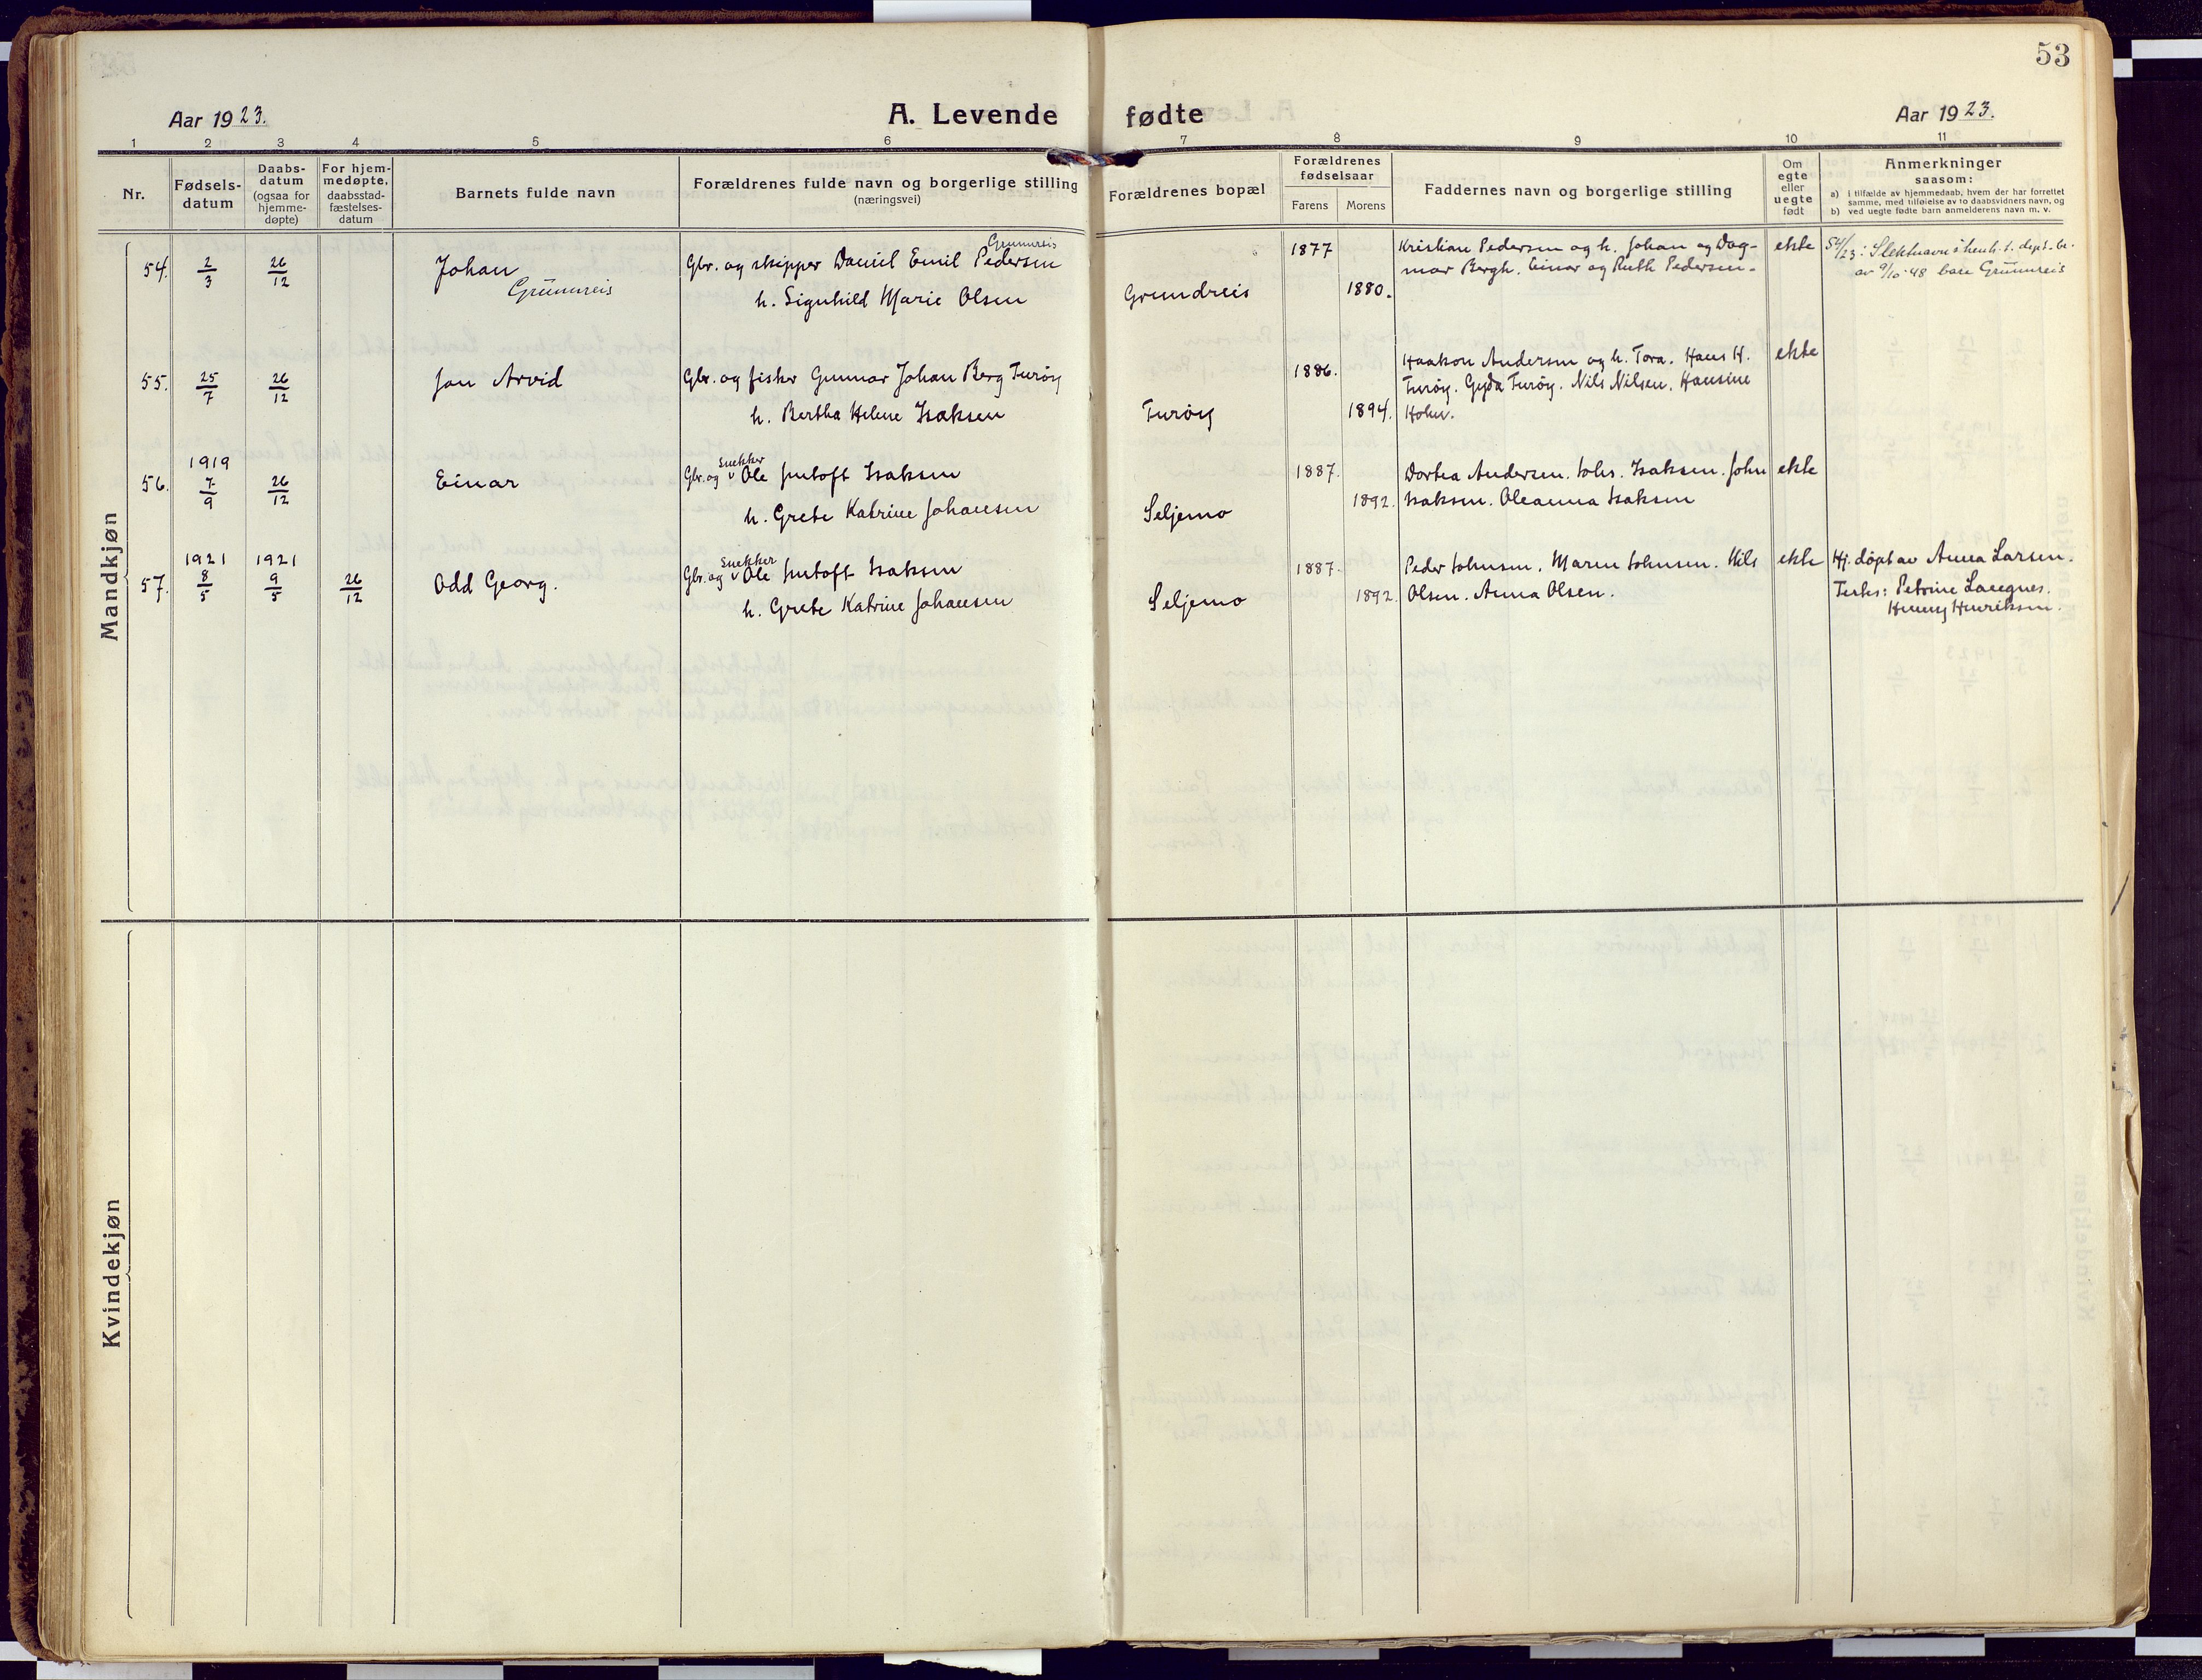 53
Aar 1923.
A. Levende fødte
Aar 1923.
1 2 3 4 5 6 7 8 9 10 11
Nr.
Fødsels-
datum
Daabs-
datum
(ogsaa for
hjemme-
døpte)
For hjem-
medøpte,
daabsstad-
fæstelses-
datum
Barnets fulde navn
Forældrenes fulde navn og borgerlige stilling
(næringsvei)
Forældrenes bopæl
Forældrenes
fødselsaar
Farens Morens
Faddernes navn og borgerlige stilling
Om
egte
eller
uegte
født
Anmerkninger
saasom:
a) i tilfælde av hjemmedaab, hvem der har forrettet
samme, med tilføielse av to daabsvidners navn, og
b) ved uegte fødte barn anmelderens navn m. v.
Mandkjøn
54. 2/3 26/12 Johan
Grunnreis
Grunnreis
Gbr. og skipper Daniel Emil Pedersen
h. Signhild Marie Olsen
Grundreis
1877
1880.
Kristian Pedersen og h. Johan og Dag-
mar Bergh. Einar og Ruth Pedersen.
ekte
54/23: Slektnavn i henh. t. dept. br.
av 9/10-48 bare Grunnreis
55. 25/7 26/12 Jan Arvid
Gbr. og fisker Gunnar Johan Berg Turøy
h. Bertha Helene Isaksen
Turøy
1886.
1894.
Haakon Andersen og h. Tora. Hans H.
Turøy. Gyda Turøy. Nils Nilsen. Hansine
Holm.
ekte
1919
56. 7/9 26/12 Einar
snekker
Gbr. og v Ole Jentoft Isaksen
h. Grete Katrine Johansen
Seljemo
1887.
1892.
Dortea Andersen. Johs. Isaksen. John
Isaksen. Oleanna Isaksen
ekte
1921 1921
57. 8/5 9/5 26/12 Odd Georg.
snekker
Gbr. og v Ole Jentoft Isaksen
h. Grete Katrine Johansen
Seljemo
1887.
1892.
Peder Johnsen. Maren Johnsen. Nils
Olsen. Anna Olsen.
ekte
Hj. døpt av Anna Larsen.
Testes: Petrine
Henny Henriksen.
Kvindekjøn